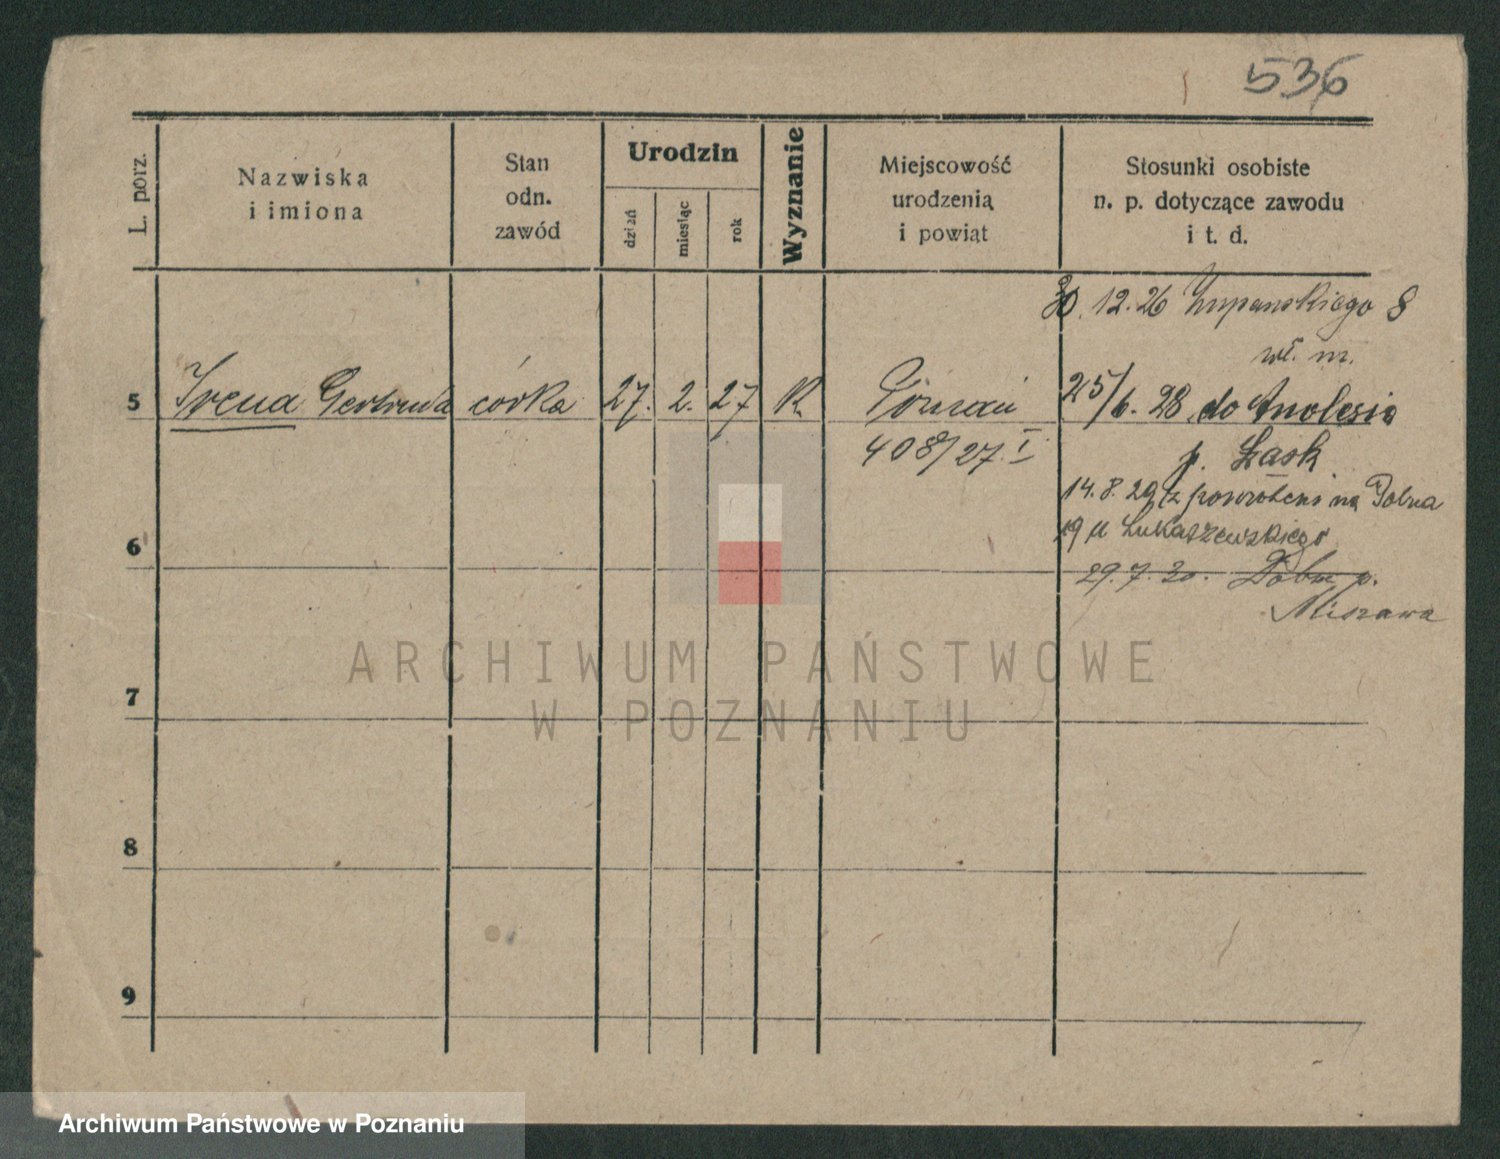 536
L. porz.
Nazwiska
i imiona
Stan
odn.
zawód
Urodzin
dzień
miesiąc
rok
Wyznanie
Miejscowość
urodzenią
i powiąt
Stosunki osobiste
n. p. dotyczące zawodu
i t. d.
30. 12. 26 Żupańskiego 8
wł. m.
5 Irena Gertruda córka 27. 2. 27 K 25/6. 28 do
408/27. I
p. Łask
14. 8. 29 z powrotem na
19 u Łukaszewskiego
6
29. 7. 30. p.
7
8
9
ARCHIWUM PAŃSTWOWE
W POZNANIU
Archiwum Państwowe w Poznaniu